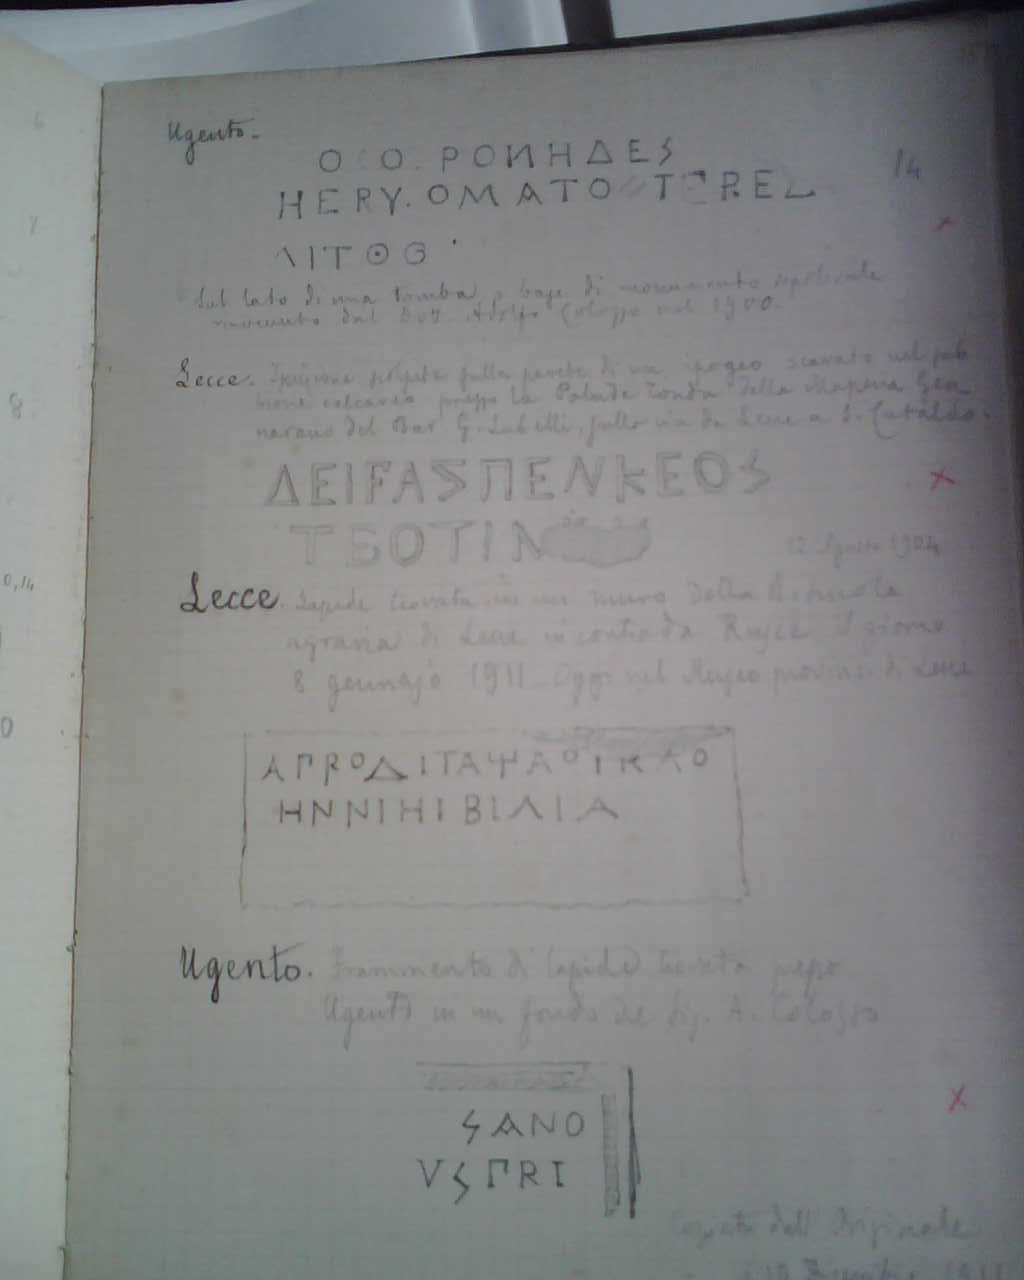 Ugento.
Ο Ο. ΡΟИΗΔΕS
14
HERY. OMATO TEREL
ΛΙΤΟΘ
Sul lato di una tomba o base di monumento sepolcrale
rinvenuto dal Dott. Adolfo Colosso nel 1900.
Lecce. Iscrizione scolpita sulla parete di un ipogeo scavato nel sab
bione calcareo presso la Palude Tonda della Masseria
del Bar. G. Lubelli, sulla via da Lecce a S. Cataldo.
ΔEIFAΣΠENKEOS
TBOTIN
12 Agosto 1904
Lecce. Lapide trovata in un muro della Scuola
agraria di Lecce in contrada Rugce il giorno
8 gennajo 1911. Oggi nel Museo provinc. di Lecce
ΑΓRΟΔΙΤΑΨΑΟΙΚΑΟ
ΗΝΝΙΗΙΒΙΛΙΑ
Ugento. Frammento di lapide trovata presso
Ugento in un fondo del Sig. A. Colosso
SANO
VSΓRI
Copiato dall'Originale